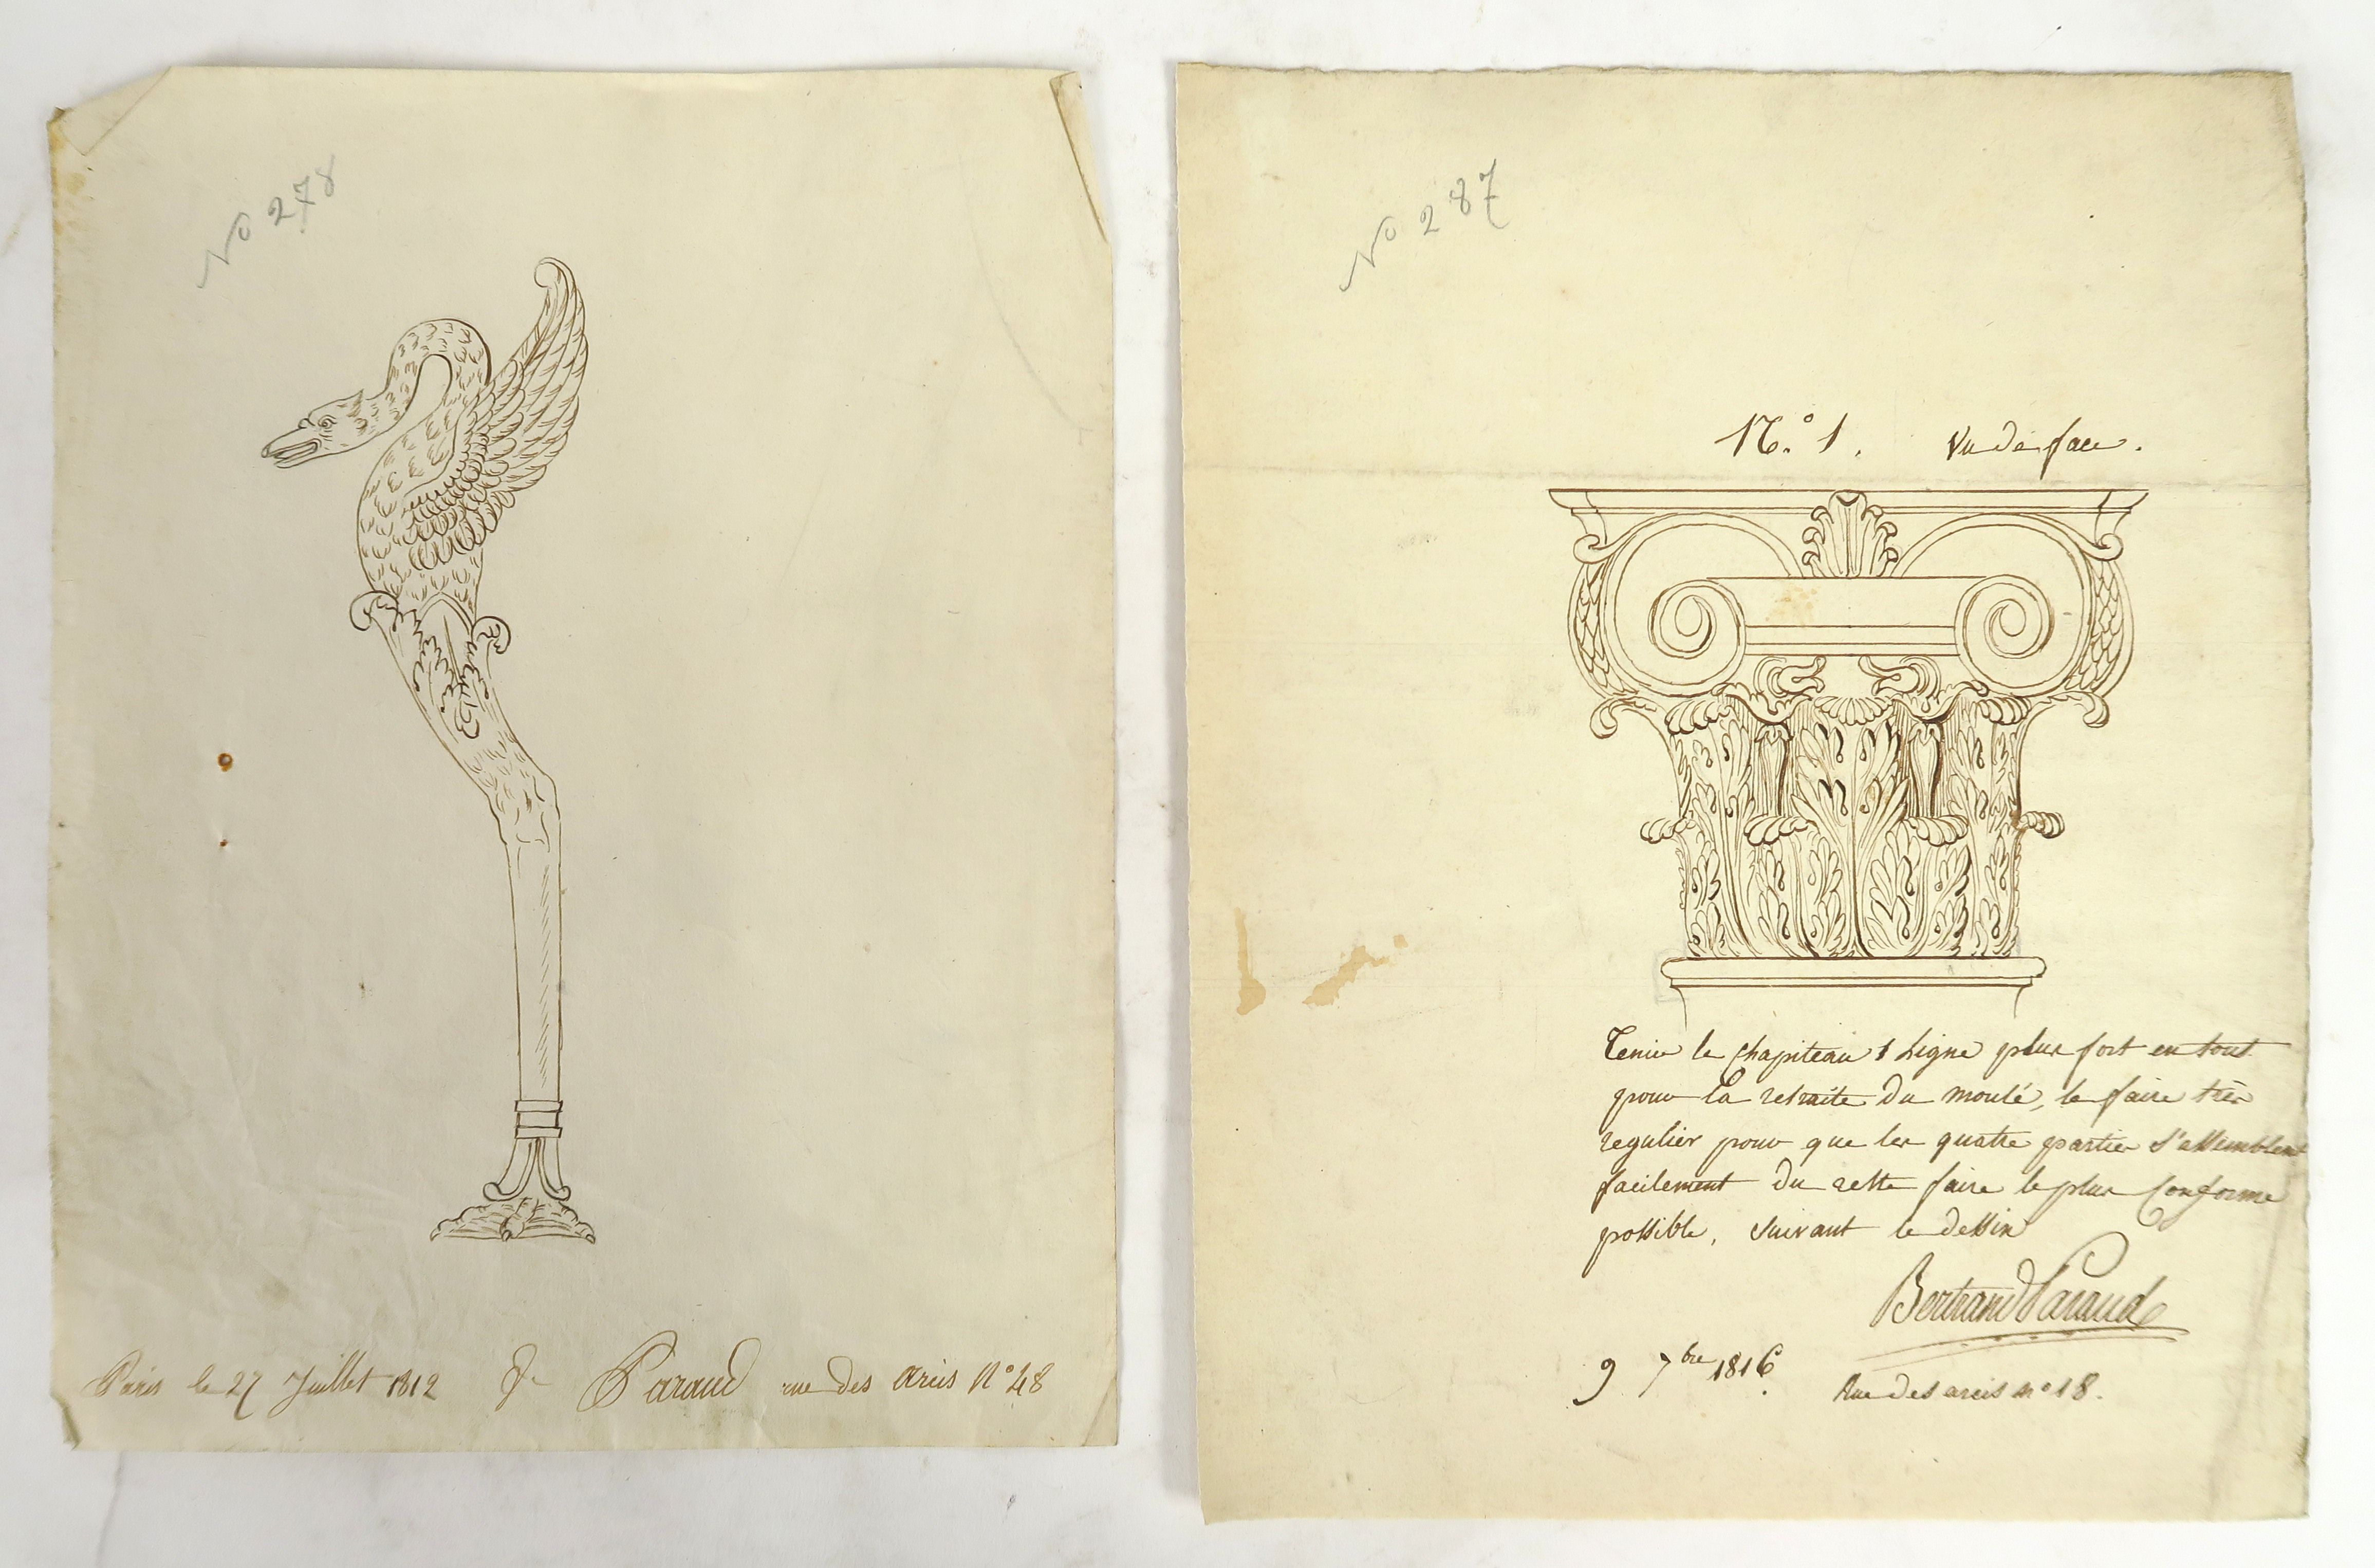 No 278
Paris le 27 Juillet 1812 Paraud rue des Arcis N° 48
No 287
N.° 1. Vu de face.
Tenir le Chapiteau 1 Ligne plus fort en tout
pour la retraite du moulé, le faire très
regulier pour que les quatre parties s'assemblent
facilement du reste faire le plus Conforme
possible, suivant le dessin
Bertrand Paraud
9 7bre 1816.
Rue des arcis n° 18.